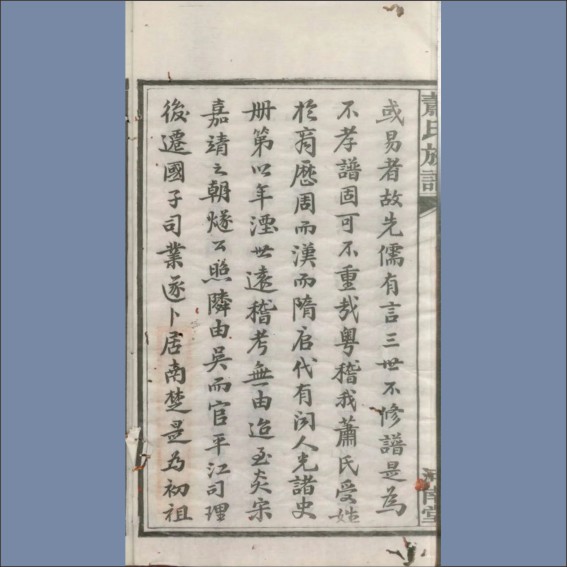 蕭氏族譜
或易者故先儒有言三世不修譜是為
不孝譜固可不重哉粤稽我蕭氏受姓
於商歷周而漢而隋唐代有闻人光諸史
册第以年湮世遠稽考無由迨至炎宗
嘉靖之朝燧公照隣由吳而官平江司理
後遷國子司業遂卜居南楚是為初祖